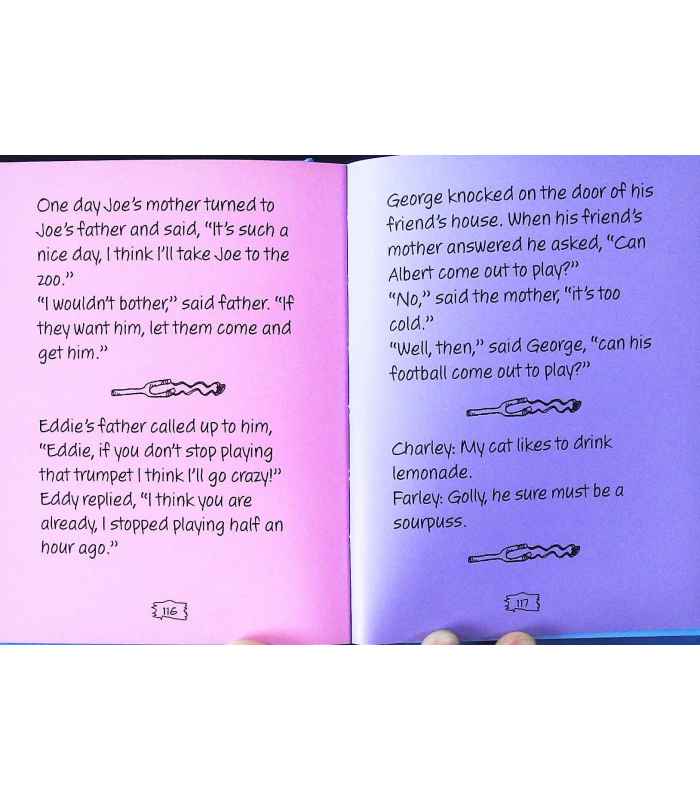 One day Joe's mother turned to
Joe's father and said, "It's such a
nice day, I think I'll take Joe to the
zoo."
"I wouldn't bother," said father. "If
they want him, let them come and
get him."
Eddie's father called up to him,
"Eddie, if you don't stop playing
that trumpet I think I'll go crazy!"
Eddy replied, "I think you are
already, I stopped playing half an
hour ago."
116
George knocked on the door of his
friend's house. When his friend's
mother answered he asked, "Can
Albert come out to play?"
"No," said the mother, "it's too
cold."
"Well, then," said George, "can his
football come out to play?"
Charley: My cat likes to drink
lemonade.
Farley: Golly, he sure must be a
sourpuss.
117